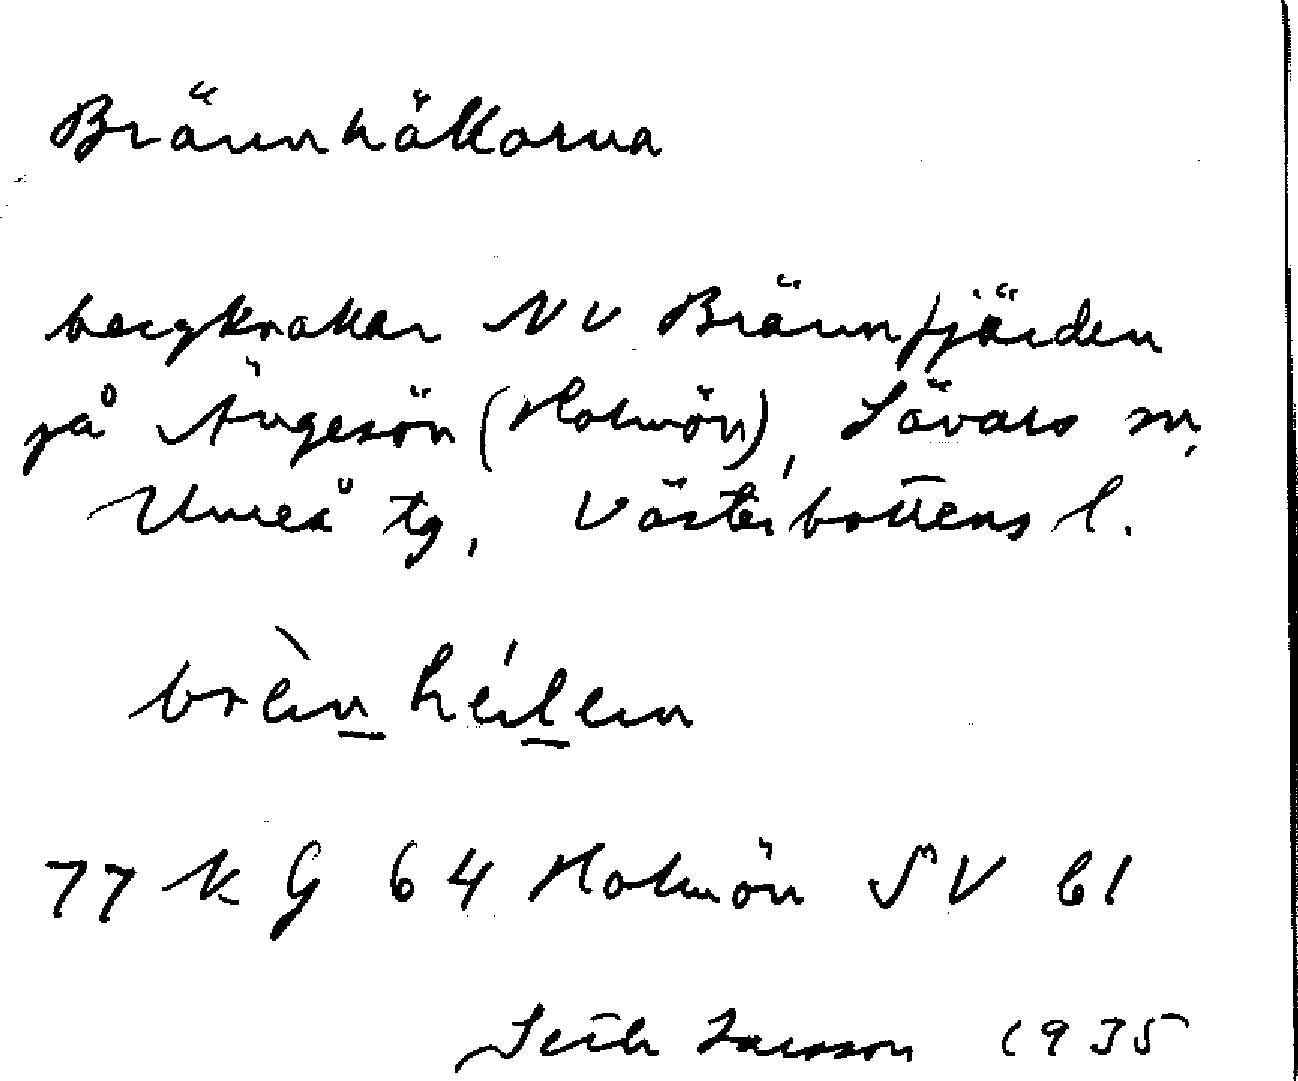 Brännhällorna
bergknallar NV Brännfjärden
på Ängesön (Holmön), Sävars sn,
Umeå tg, Västerbottens l.
brèn héilen
77 K G 64 Holmön SV bl
Seth Larsson 1935